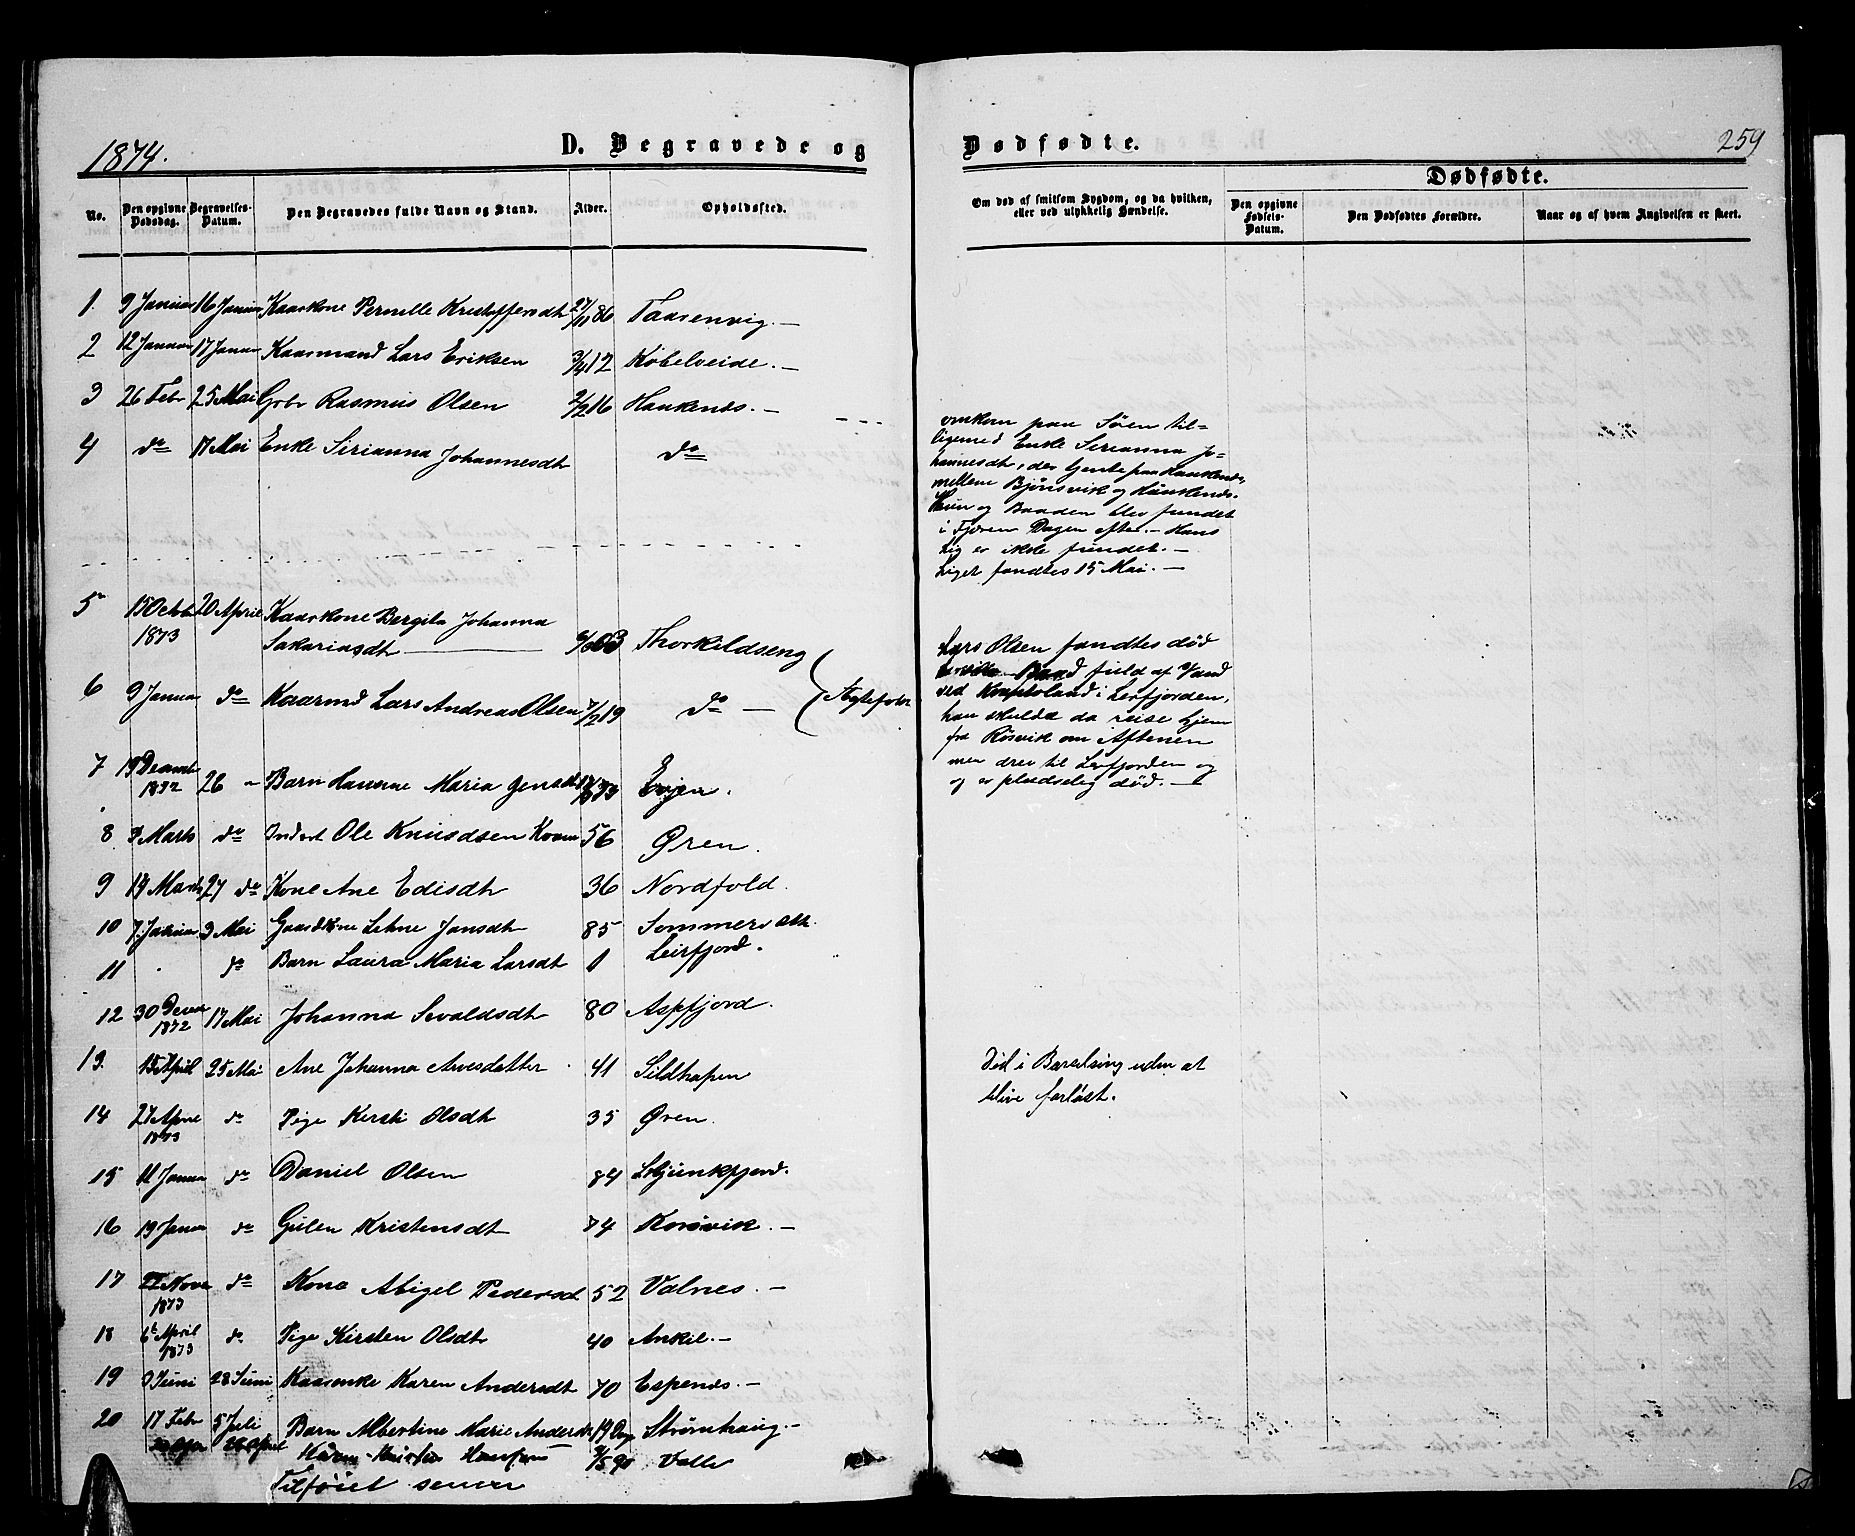 1874.
D. Begravede og
Dødfødte.
259
Dødfødte.
No.
Den opgivne Dødsdag.
Begravelses-Datum.
Den Begravedes fulde Navn og Stand.
Alder.
Opholdssted.
Om død af smitsom Sygdom, og da hvilken,
eller ved ulykkelig Hændelse.
Den opgivne Fødsels-Datum.
Den Dødfødtes Forældre.
Naar og af hvem Angivelsen er skeet.
1. 9 Januar 16 Januar Kaarkone Pernille Kristoffersdt 27/11 86 Taasenvig. —
2 12 Januar 17 Januar Kaarmand Lars Eriksen 3/4 12 Kobelveide. —
3 26 Febr 25 Mai Gbr Rasmus Olsen 2/2 16 Haukenæs. —
4 do 17 Mai Enke Sirianna Johannesdt do
omkom paa Søen til-
ligemed Enke Serianna Jo-
hannesdt, der Gente paa Haukenæs,
mellem Bjørsvik og Haukenæs.
Hun og Baaden blev fundet
i Fjæren Dagen efter. — Hans
Lig er ikke fundet. —
Liget fandtes 15 Mai. —
5 15 Octb 20 April Kaarkone Bergita Johanna
1873 Sakariasdt 63 Thorkildseng
6 9 Januar do Kaarmd Lars Andreas Olsen 7/2 19 do — Ægtefolk
Lars Olsen fandtes død
Baad fuld af Vand
ved i Leirfjorden,
han skulde da reise hjem
fra Røsvik om Aftenen
men drev til Leirfjorden og
og er pludselig død. —
7 19 Decemb 26 " Barn Hanna Maria Evjen.
1872
8 3 Marts do Inderst Ole Knudsen Kvam 56 Øren.
9 14 Marts 27 do Kone Ane Edisdt 36 Nordfold.
10 7. Januar 3 Mai Gaardkone Lehne Jansdt 85 Sommersæth.
11 . do Barn Laura Maria Larsdt 1 Leirfjord.
12 30 Decbr 17 Mai Johanna Sevaldsdt 80 Aspfjord.
1872
13. 15 April 25 Mai Ane Johanna Arnesdatter 41 Sildhapen
Død i Barselseng uden at
blive forløst.
14 27 April do Pige Kirsti Olsdt 35 Øren.
1873
15 11 Januar do Daniel Olsen 84
16 19 Januar do Gulen Kristensdt 74 Korsvik. —
17 22 Novb do Kone Abigel Pedersd 52 Valnes. —
1873
18 6te April do Pige Kirsten Olsdt 40 Ankil. —
1873
19 3 Juni 28 Juni Kaarenke Karen Andersdt 70 Espenæs. —
20 17 Febr 5 Juli Barn Albertine Marie Andersdt 19 Dag Strømhaug. —
28 April Hansen 9/5 90 Valle
Tilføiet senere